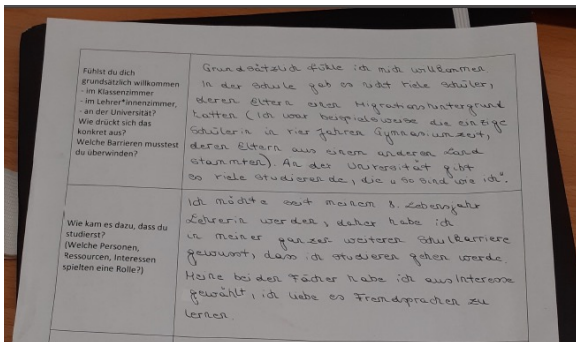 Fühlst du dich
grundsätzlich willkommen
- im Klassenzimmer
- im Lehrer*innenzimmer,
- an der Universität?
Wie drückt sich das
konkret aus?
Welche Barrieren musstest
du überwinden?
Grundsätzlich fühle ich mich willkommen
In der Schule gab es nicht viele Schüler,
deren Eltern einen Migrationshintergrund
hatten (Ich war beispielsweise die einzige
Schülerin in vier Jahren Gymnasiumzeit,
deren Eltern aus einem anderen Land
stammten). An der Universität gibt
es viele Studierende, die „so sind wie ich".
Wie kam es dazu, dass du
studierst?
(Welche Personen,
Ressourcen, Interessen
spielten eine Rolle?)
Ich möchte seit meinem 8. Lebensjahr
Lehrerin werden, daher habe ich
in meiner ganzen weiteren Schulkarriere
gewusst, dass ich studieren gehen werde.
Meine beiden Fächer habe ich aus Interesse
gewählt, ich liebe es Fremdsprachen zu
lernen.